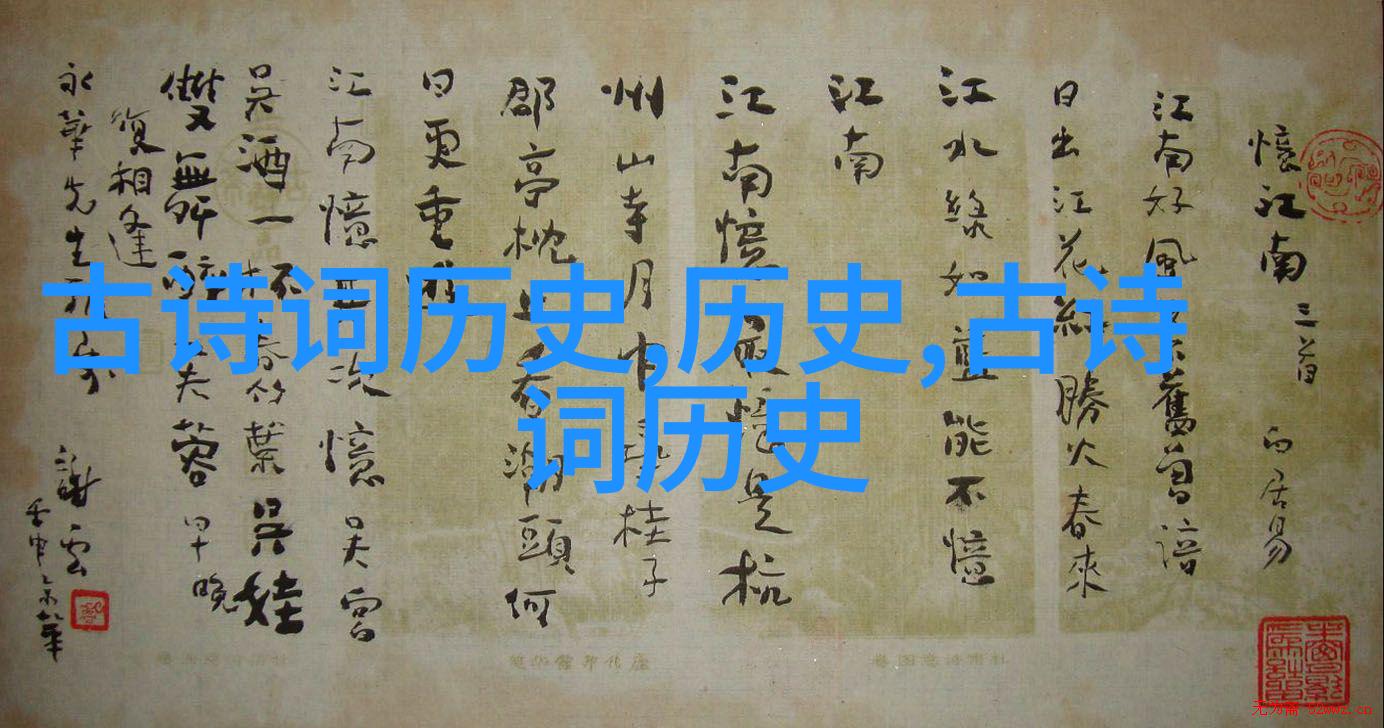 憶江南 三首 白居易
江南好風 舊曾諳
日出江花紅勝火春來
江水綠如藍能不憶
江南
江南憶最憶是杭
州山寺月中 桂子
郡亭枕上看潮頭何
日更重
江南憶 次憶吳宮
吳酒一杯春竹葉吳娃
雙無 醉芙蓉早晚
復相逢
永華先生
謝雲
壬申
古诗词历史,历史,古诗
词历史
无为斋 52wwz.cn